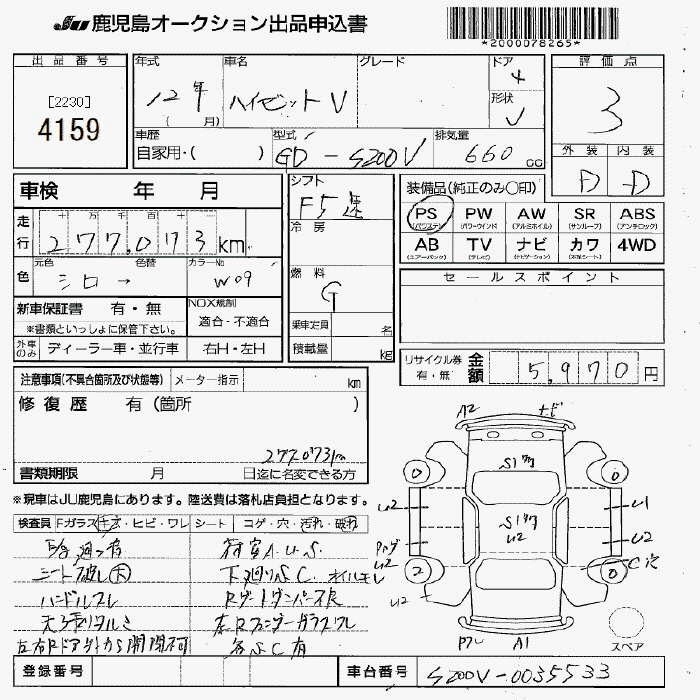 JU 鹿児島オークション出品申込書
*2000078265*
出品番号
[2230]
4159
年式 車名 グレード ドア
12年 ハイゼットV 4
( 月) 形状
V
車歴 型式 排気量
自家用・( ) GD-S200V 660 cc
評価点
3
外装 内装
D D
車検 年 月
走行 十 万 千 百 十
277,073 km
元色 色替 カラーNo
色 シロ → W09
新車保証書 有・無 NOX規制
※書類といっしょに保管下さい。 適合・不適合
外車のみ ディーラー車・並行車 右H・左H
シフト
F5速
冷房
燃料
G
乗車定員 名
積載量 kg
装備品(純正のみ○印)
PS PW AW SR ABS
(パワステ) (パワーウインド) (アルミホイル) (サンルーフ) (アンチロック)
AB TV ナビ カワ 4WD
(エアーバック) (テレビ) (ナビゲーション) (本革シート)
セールスポイント
リサイクル券 有・無 金額 5,970 円
注意事項(不具合箇所及び状態等) メーター指示 km
修復歴 有(箇所 )
277073km
書類期限 月 日迄に名変できる方
※現車はJU鹿児島にあります。陸送費は落札店負担となります。
検査員 Fガラスキズ・ヒビ・ワレ シート コゲ・穴・汚れ・破れ
シート破れ(大) 下廻りS.C. オイルモレ
ハンドルスレ Rゲートダンパー不良
天張りタルミ 左Rフェンダーガラスワレ
左右Rドア外から開閉不可 各S.C有
A2 ナビ
0 0
U2 U1
U2
U2
C穴
2 0
U2
A1
スペア
登録番号 車台番号 S200V-0035533